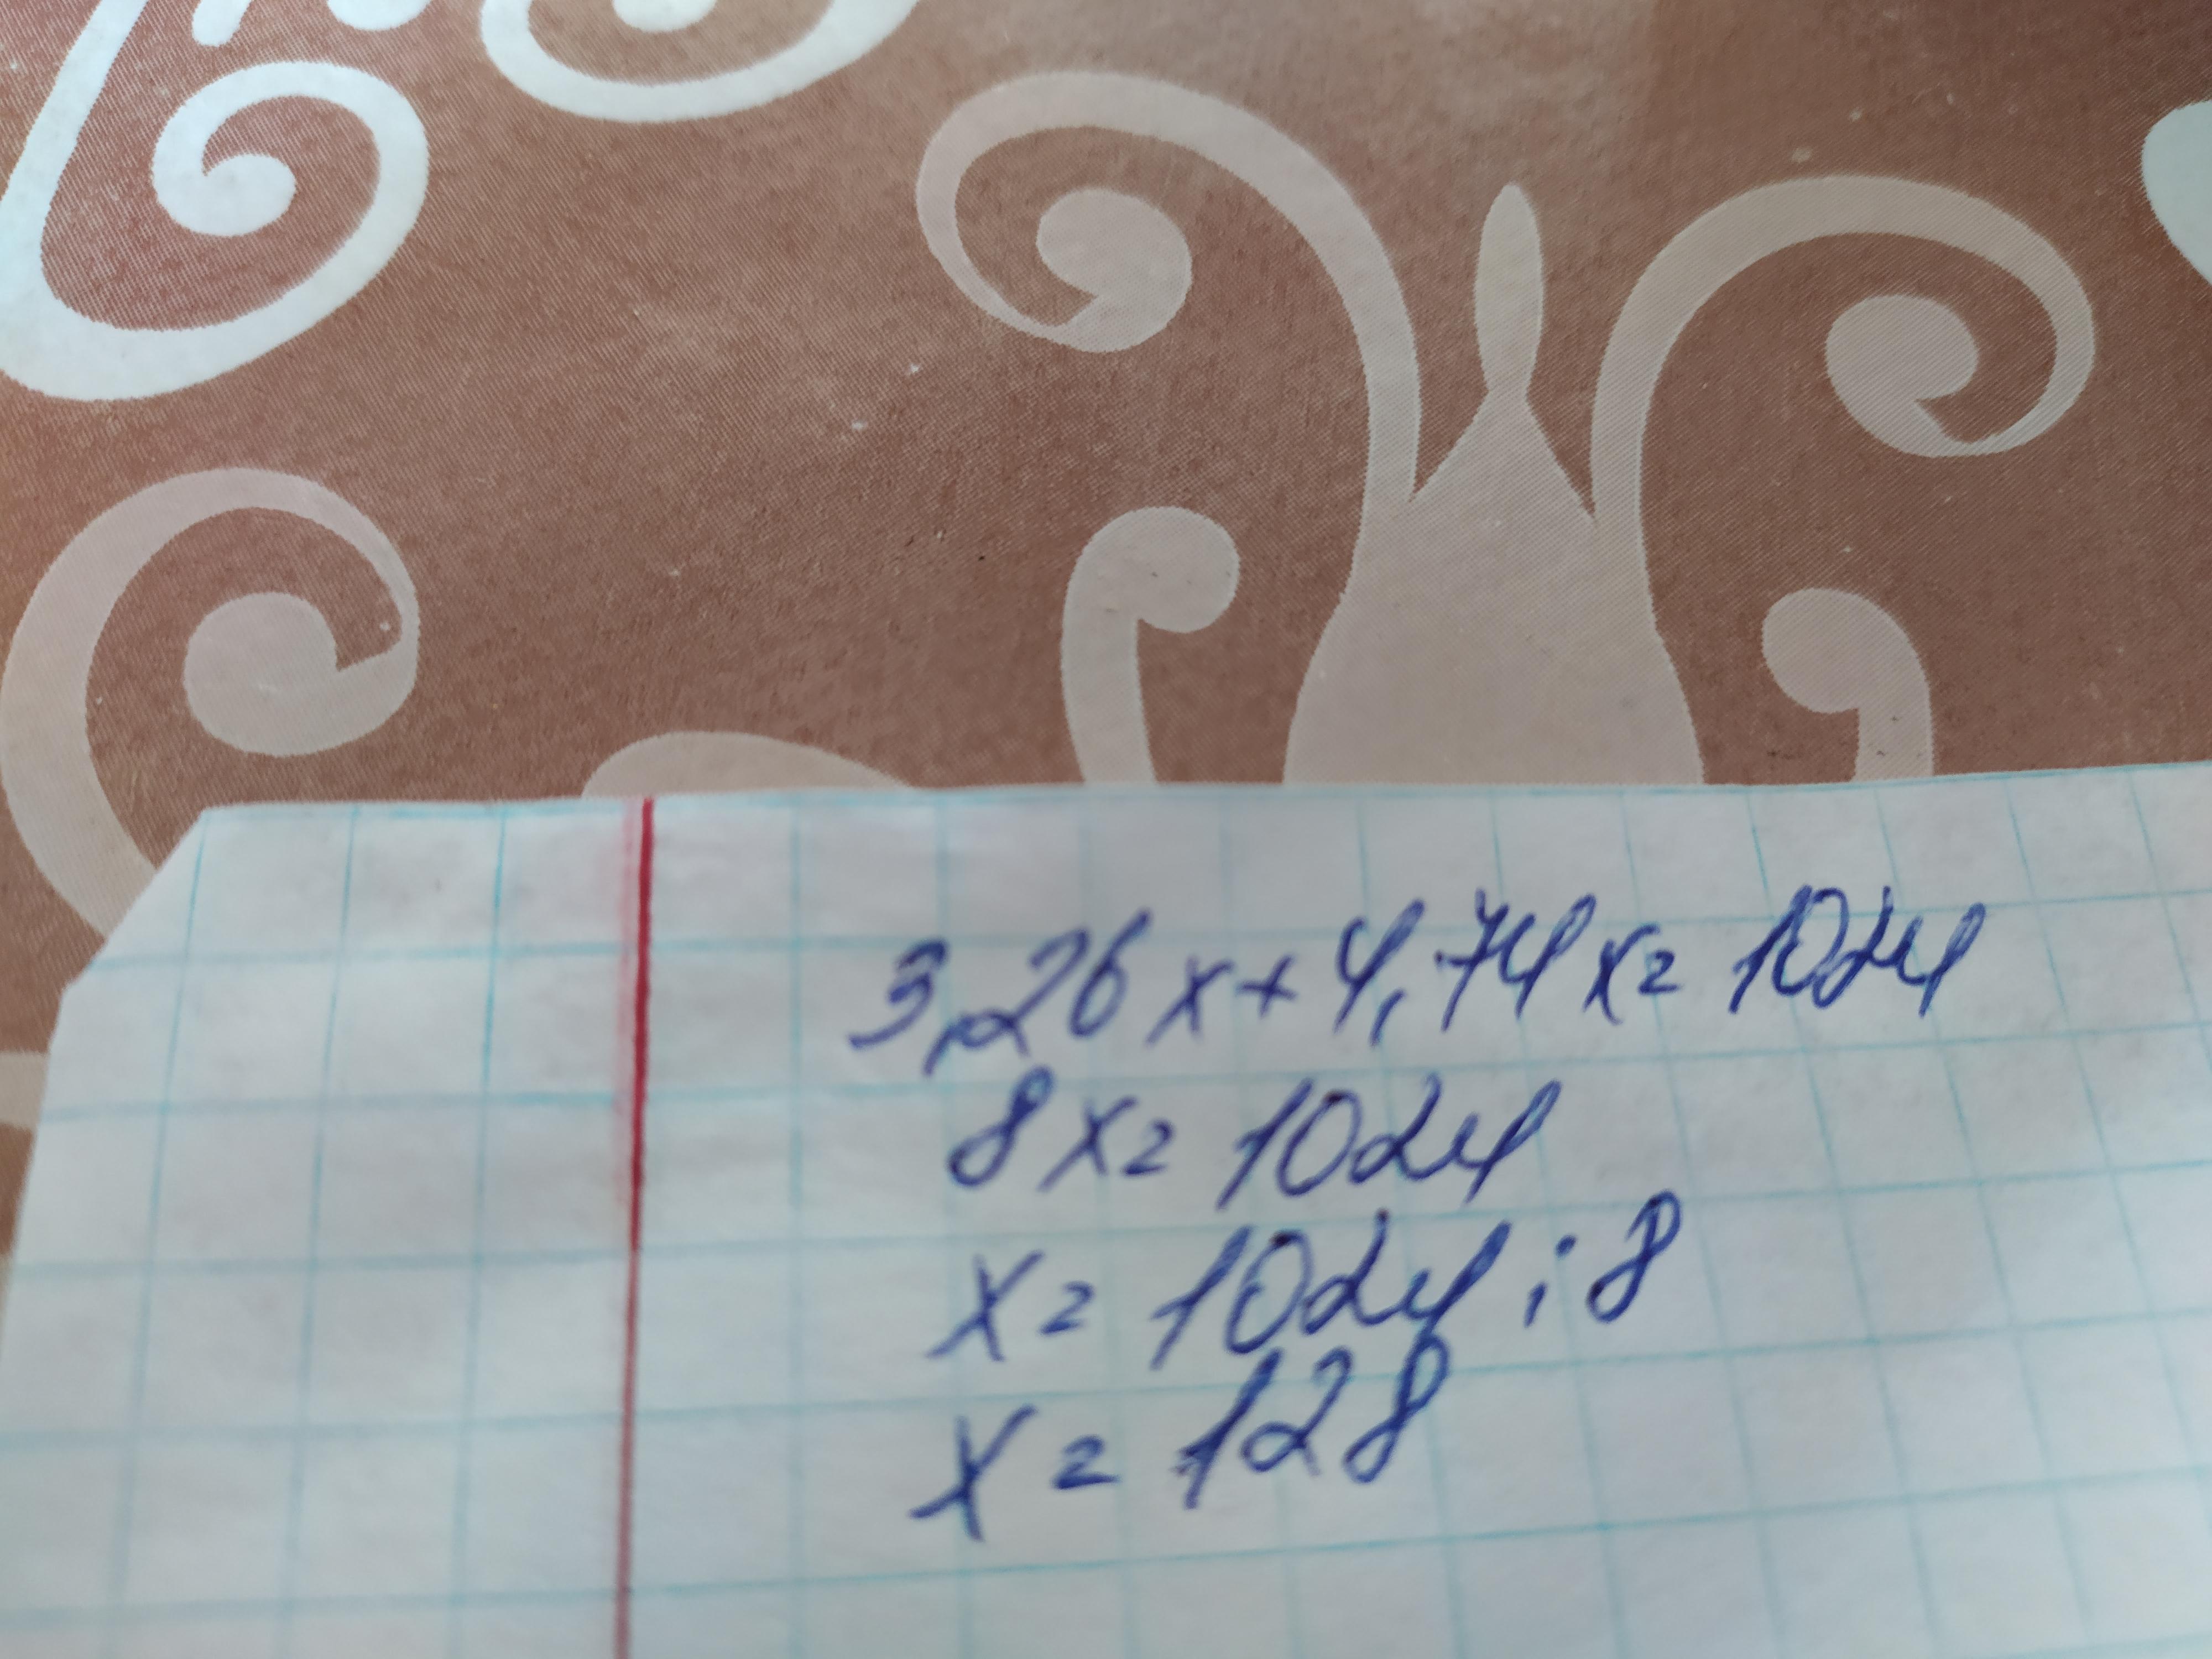 3,26x+4,74x=1024
8x=1024
x=1024:8
x=128